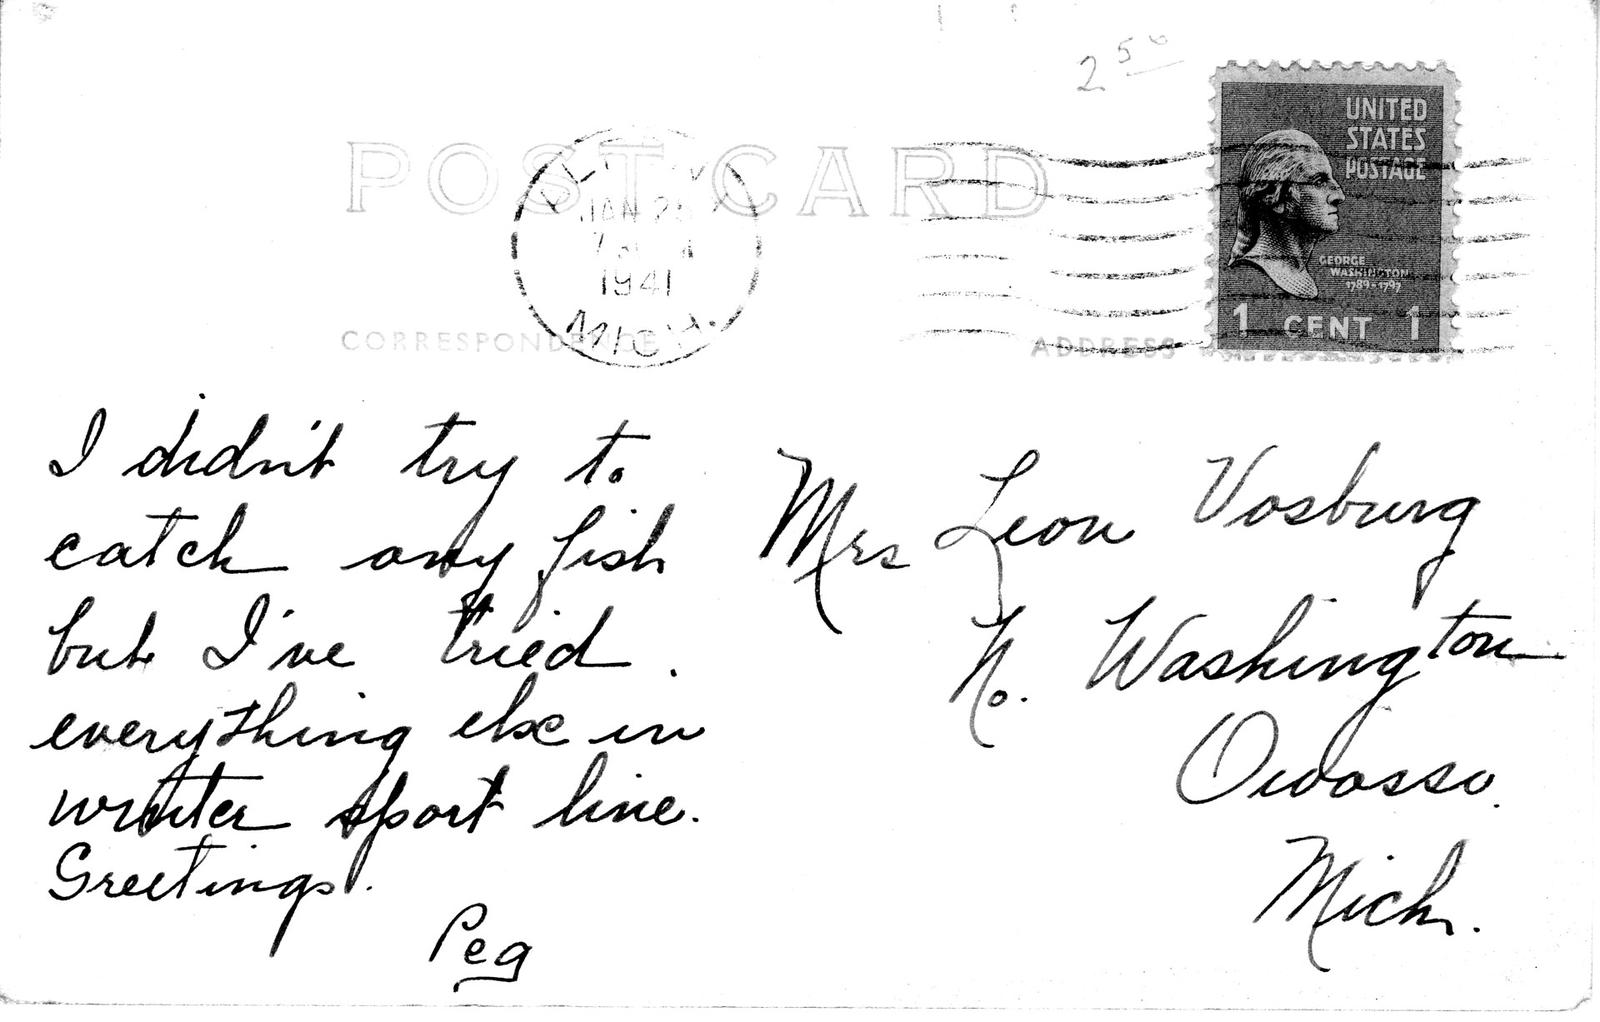 2 50
POST CARD
JAN 25
1941
MICH.
UNITED
STATES
POSTAGE
GEORGE
WASHINGTON
1789-1797
1 CENT 1
CORRESPONDENCE
ADDRESS
I didn't try to
catch any fish
but I've tried.
everything else in
winter sport line.
Greetings.
Peg
Mrs Leon Vosburg
N. Washington
Owosso.
Mich.